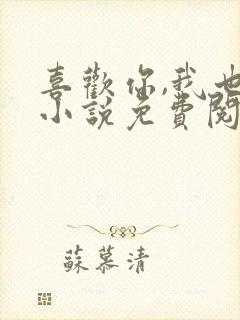 喜歡你,我也
小說免費閱
蘇慕清